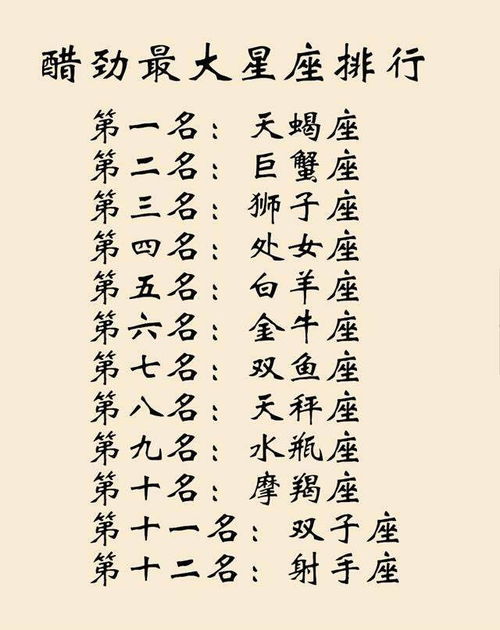 醋劲最大星座排行
第一名：天蝎座
第二名：巨蟹座
第三名：狮子座
第四名：处女座
第五名：白羊座
第六名：金牛座
第七名：双鱼座
第八名：天秤座
第九名：水瓶座
第十名：摩羯座
第十一名：双子座
第十二名：射手座